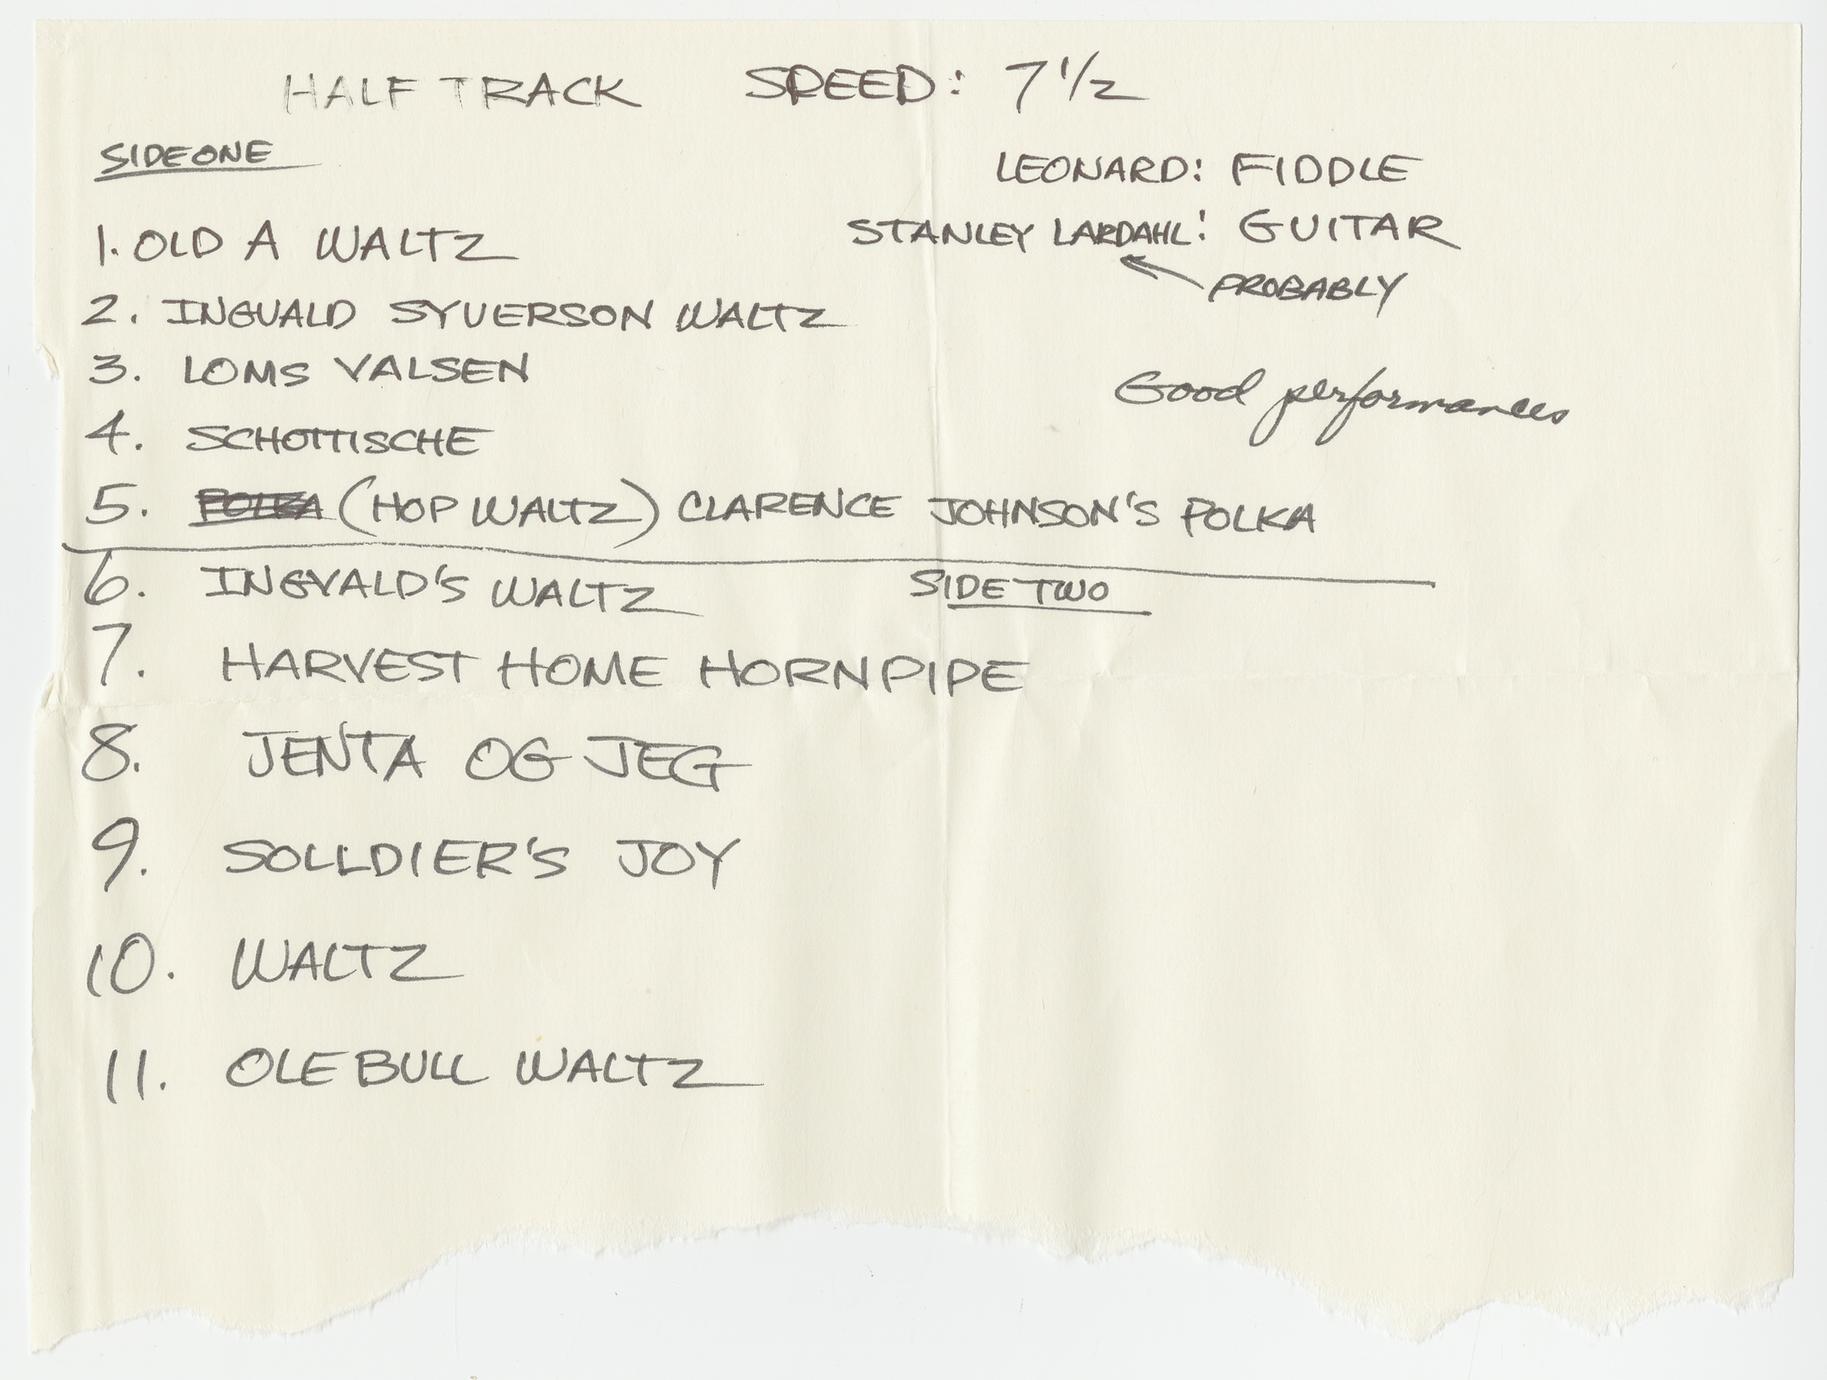 HALF TRACK SPEED: 7 1/2
SIDE ONE
LEONARD: FIDDLE
STANLEY LARDAHL: GUITAR
PROBABLY
1. OLD A WALTZ
2. INGVALD SYVERSON WALTZ
3. LOMS VALSEN
Good performances
4. SCHOTTISCHE
5. POLKA (HOP WALTZ) CLARENCE JOHNSON'S POLKA
6. INGVALD'S WALTZ SIDE TWO
7. HARVEST HOME HORNPIPE
8. JENTA OG JEG
9. SOLLDIER'S JOY
10. WALTZ
11. OLE BULL WALTZ